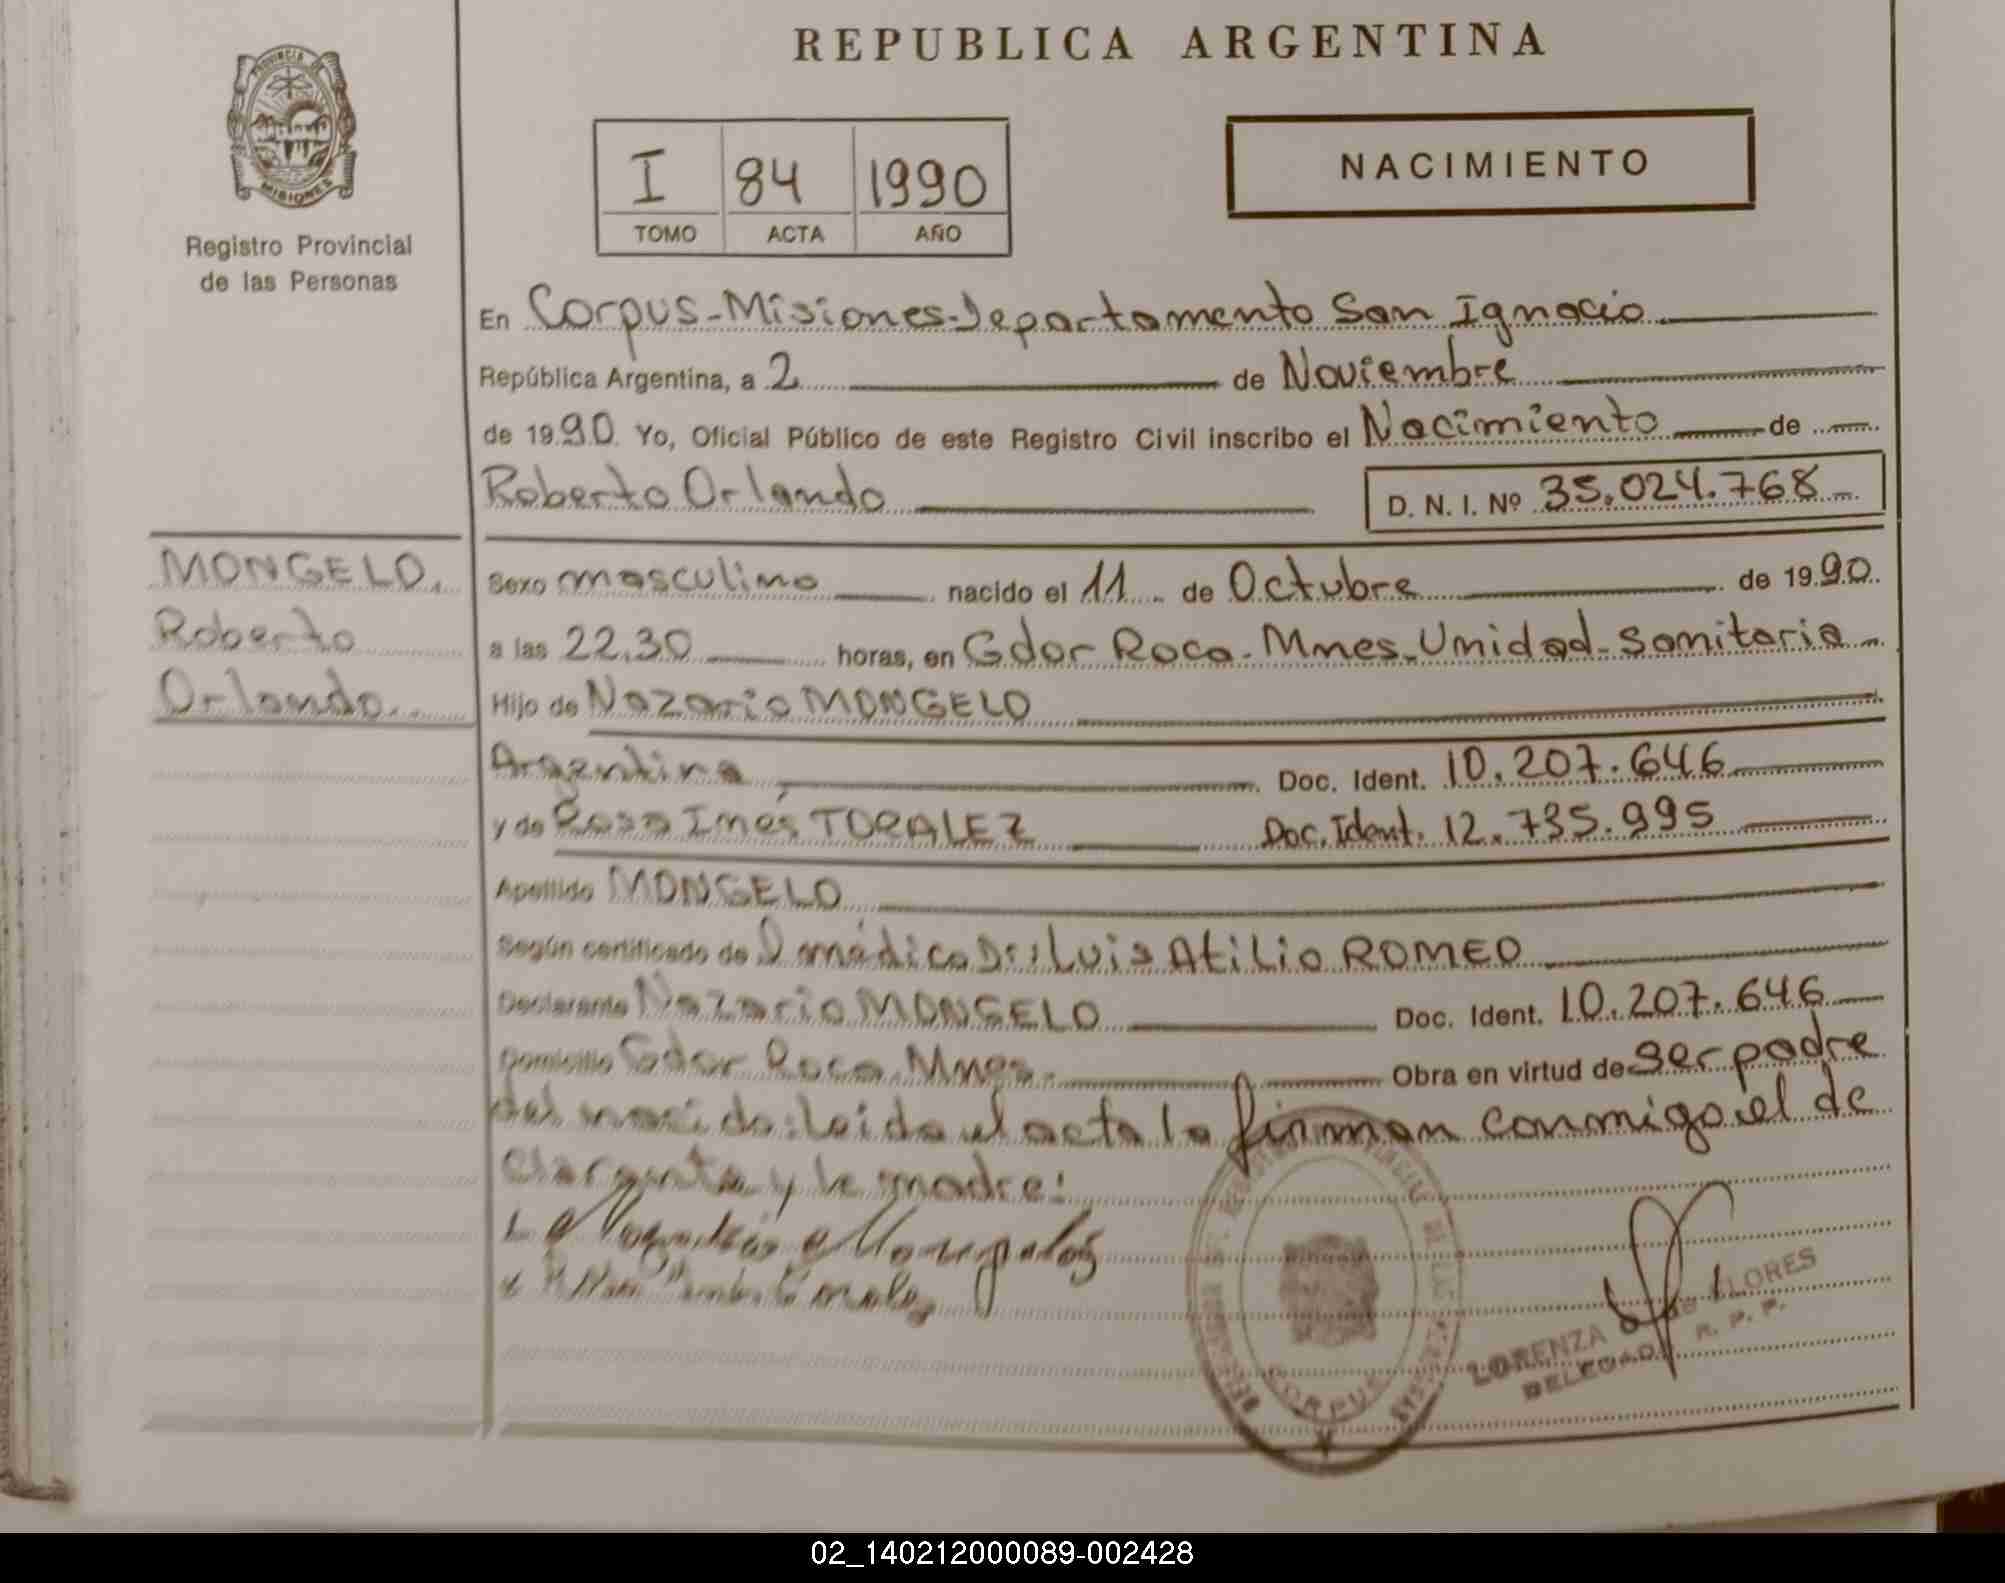 REPUBLICA ARGENTINA
PROVINCIA DE
MISIONES
Registro Provincial
de las Personas
I 84 1990
TOMO ACTA AÑO
NACIMIENTO
En Corpus-Misiones-Departamento San Ignacio
República Argentina, a 2 de Noviembre
de 1990 Yo, Oficial Público de este Registro Civil inscribo el Nacimiento de
Roberto Orlando D. N. I. Nº 35.024.768
MONGELO,
Roberto
Orlando
Sexo masculino nacido el 11 de Octubre de 1990
a las 22.30 horas, en Gdor Roca. Mnes-Unidad-Sanitaria
Hijo de Nazario MONGELO
Argentina Doc. Ident. 10.207.646
y de Rosa Inés TORALEZ Doc. Ident. 12.735.995
Apellido MONGELO
Según certificado de médico Dr: Luis Atilio ROMEO
Declarante Nazario MONGELO Doc. Ident. 10.207.646
Domicilio Gdor Roca. Mnes. Obra en virtud de ser padre
del nacido: Leida el acta la firman conmigo el de
clarante y la madre:
CORPUS
LORENZA FLORES
DELEGADA R. P. P.
02_140212000089-002428